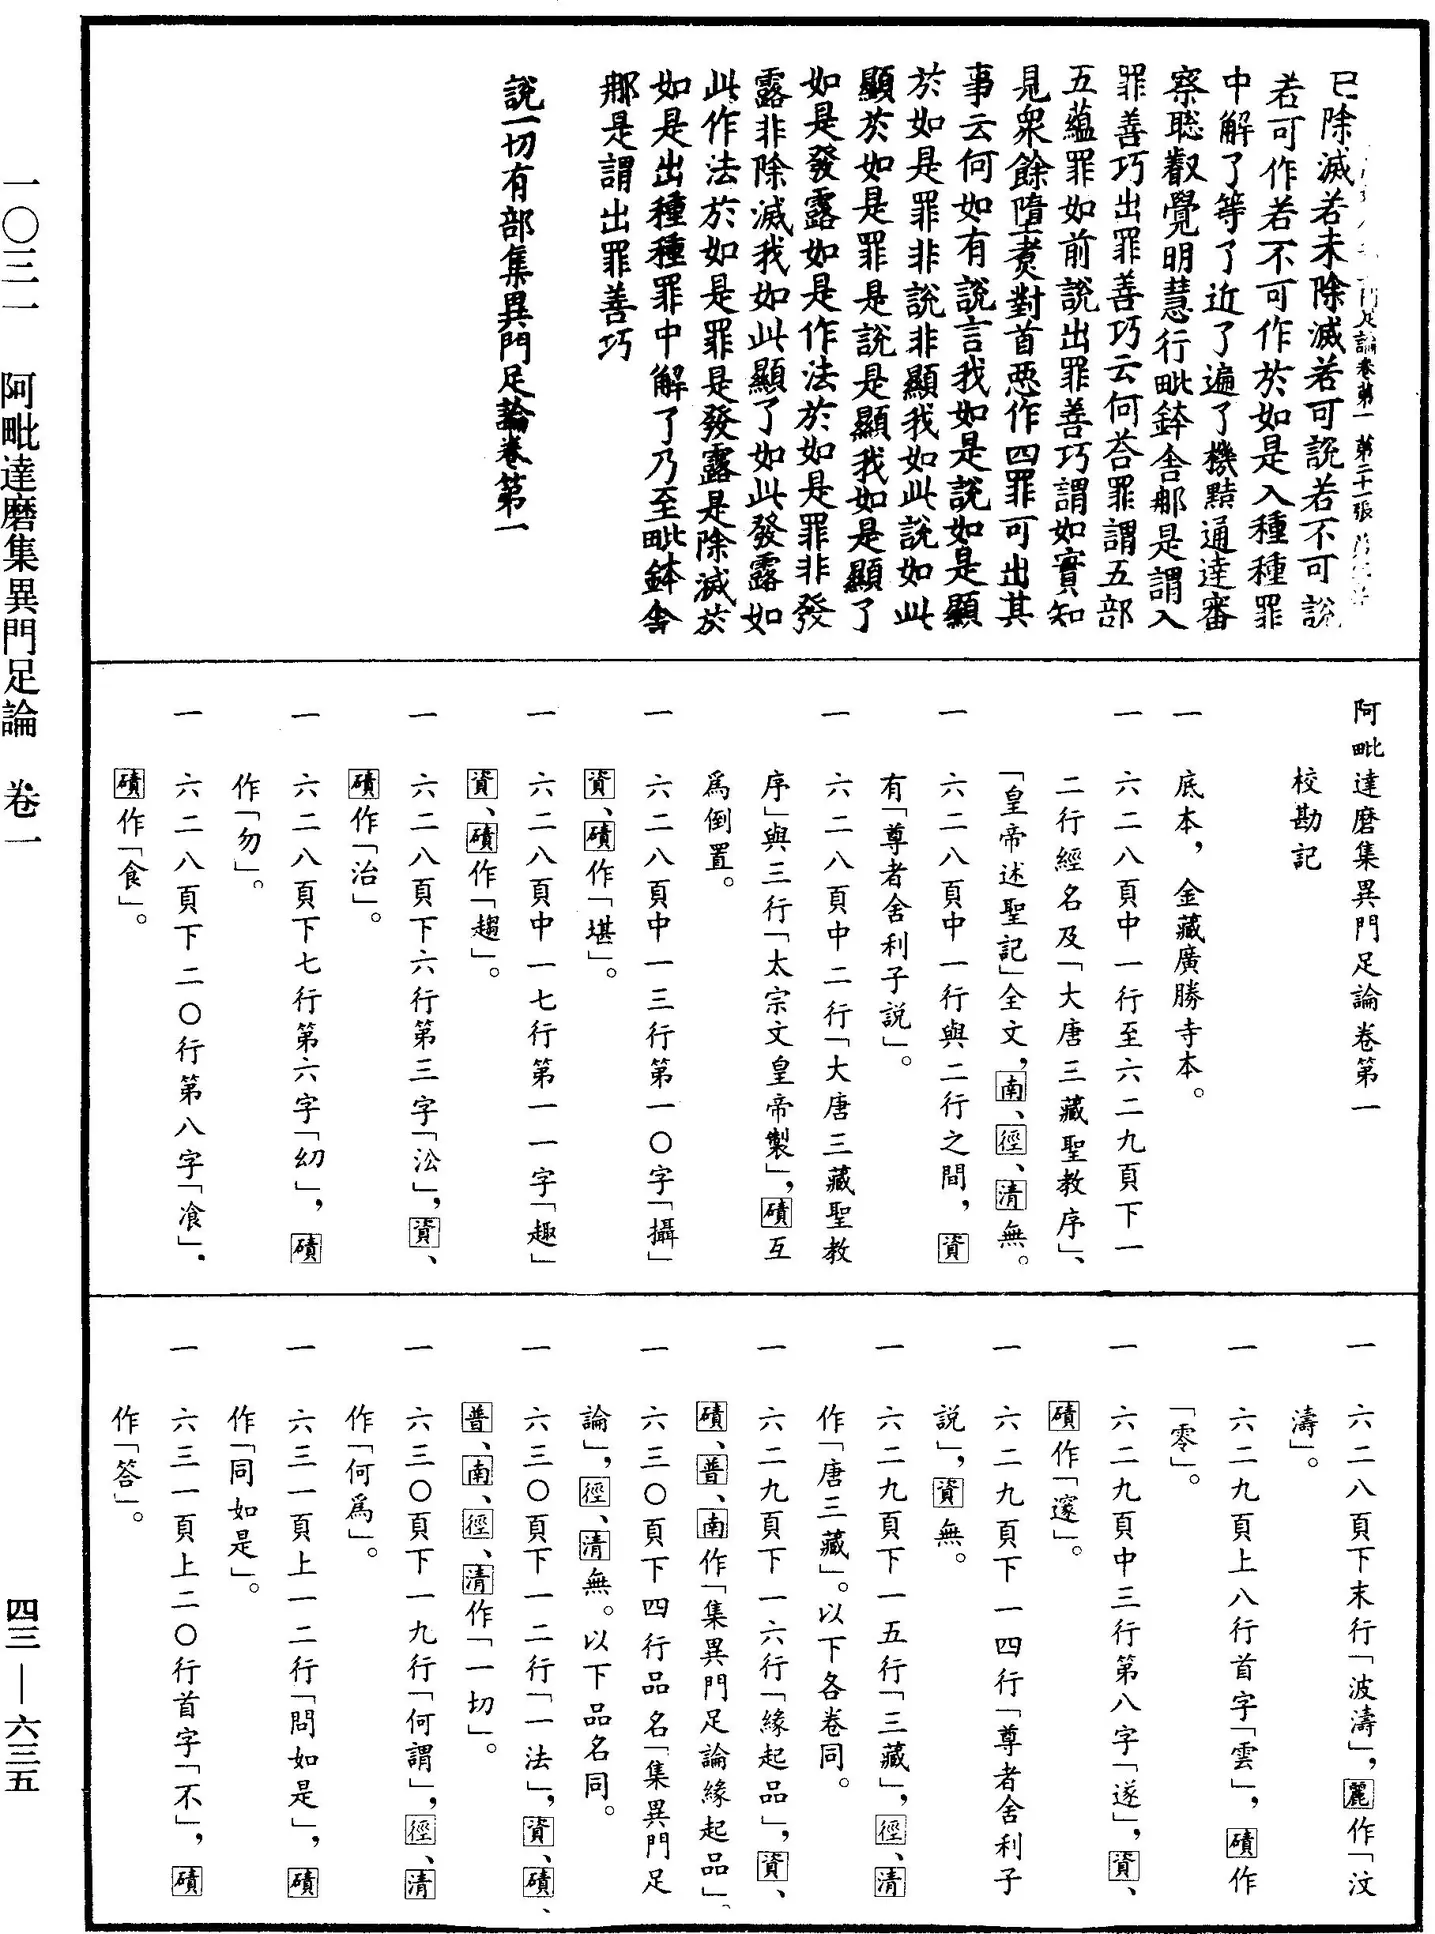 已除滅若未除滅若可說若不可說
若可作若不可作於如是入種種罪
中解了等了近了遍了機黠通達審
察聡叡覺明慧行毗鉢舍那是謂入
罪善巧出罪善巧云何荅罪謂五部
五蘊罪如前說出罪善巧謂如實知
見衆餘墮煑對首惡作四罪可出其
事云何如有說言我如是說如是顯
於如是罪非說非顯我如此說如此
顯於如是罪是說是顯我如是顯了
如是發露如是作法於如是罪非發
露非除滅我如此顯了如此發露如
此作法於如是罪是發露是除滅於
如是出種種罪中解了乃至毗鉢舍
那是謂出罪善巧
說一切有部集異門足論卷第一
門足論卷第一 第二十一張
阿毗達磨集異門足論卷第一
校勘記
底本，金藏廣勝寺本。
一 六二八頁中一行至六二九頁下一
二行經名及「大唐三藏聖教序」、
「皇帝述聖記」全文，南、徑、清無。
一 六二八頁中一行與二行之間，資
有「尊者舍利子說」。
一 六二八頁中二行「大唐三藏聖教
序」與三行「太宗文皇帝製」，磧互
爲倒置。
一 六二八頁中一三行第一〇字「攝」
資、磧作「堪」。
一 六二八頁中一七行第一一字「趣」
資、磧作「趨」。
一 六二八頁下六行第三字「㳂」，資、
磧作「治」。
一 六二八頁下七行第六字「㓜」，磧
作「勿」。
一 六二八頁下二〇行第八字「飡」．
磧作「食」。
一 六二八頁下末行「波濤」，麗作「汶
濤」。
一 六二九頁上八行首字「雲」，磧作
「零」。
一 六二九頁中三行第八字「遂」，資、
磧作「邃」。
一 六二九頁下一四行「尊者舍利子
說」，資無。
一 六二九頁下一五行「三藏」，徑、清
作「唐三藏」。以下各卷同。
一 六二九頁下一六行「緣起品」，資、
磧、普、南作「集異門足論緣起品」。
一 六三〇頁下四行品名「集異門足
論」，徑、清無。以下品名同。
一 六三〇頁下一二行「一法」，資、磧、
普、南、徑、清作「一切」。
一 六三〇頁下一九行「何謂」，徑、清
作「何爲」。
一 六三一頁上一二行「問如是」，磧
作「同如是」。
一 六三一頁上二〇行首字「不」，磧
作「答」。
一〇三一 阿毗達磨集異門足論 卷一
四三—六三五